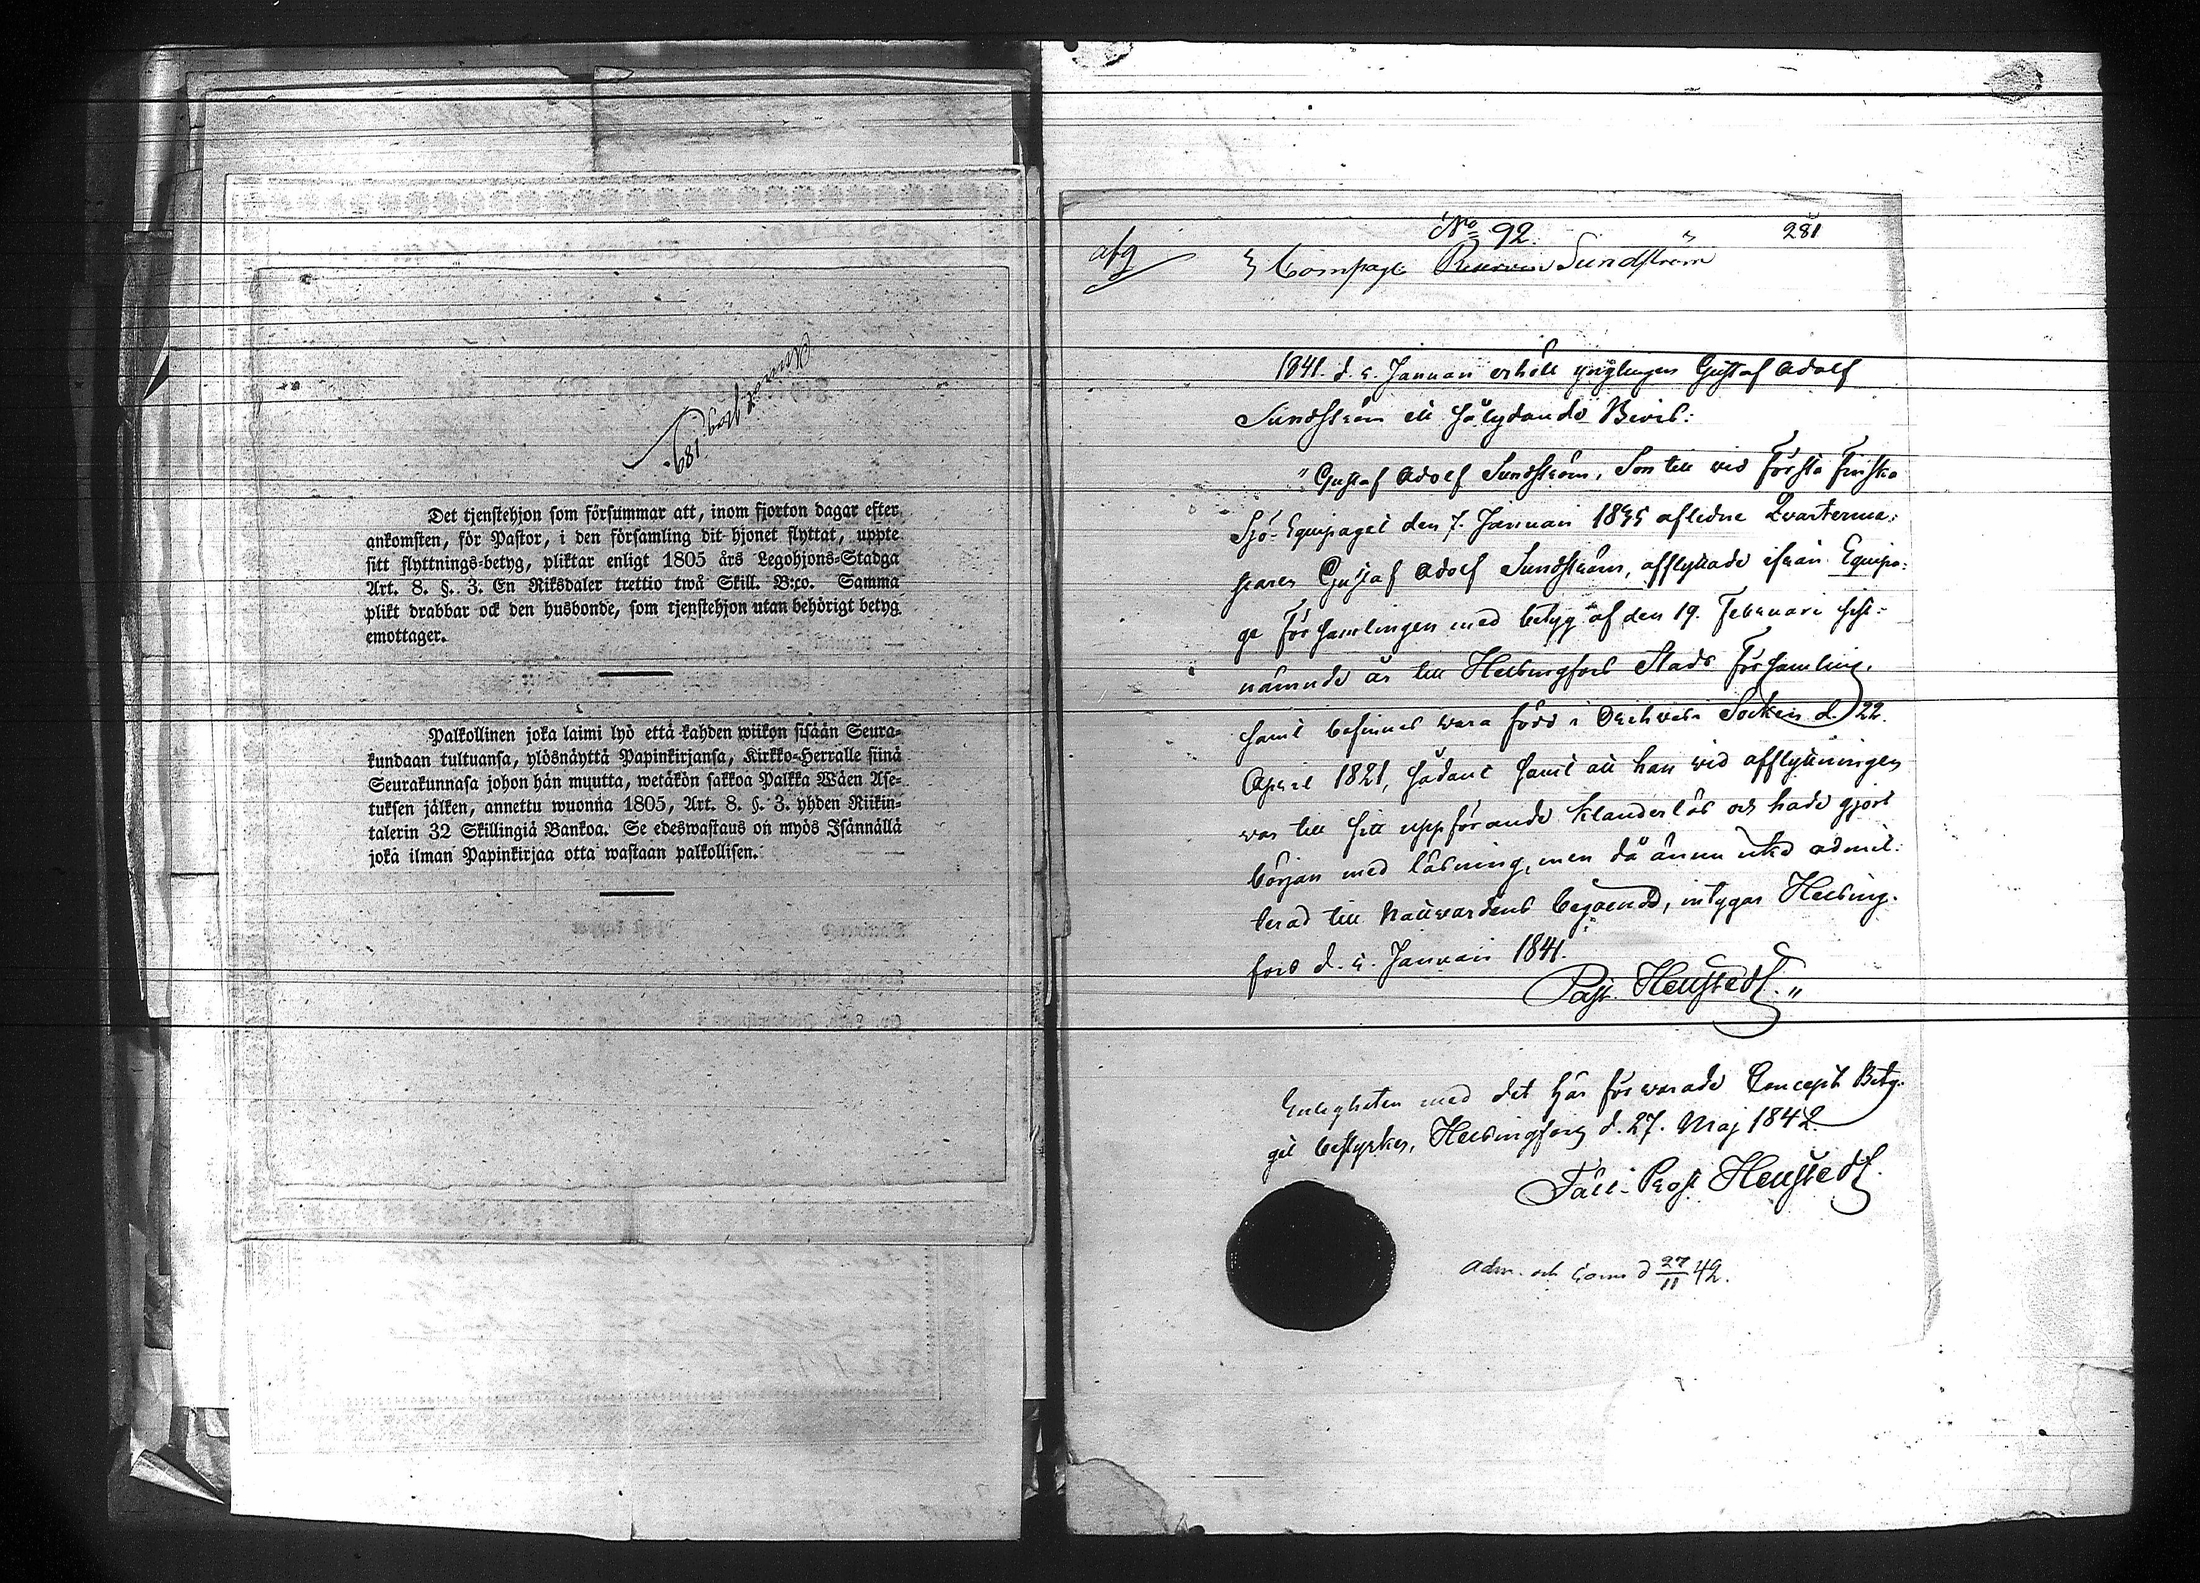 pag. 189.
Det tjenstehjon som försummar att, inom fjorton dagar efter
ankomsten, för Pastor, i den församling dit hjonet flyttat, uppte
sitt flyttnings-betyg, pliktar enligt 1805 års Legohjons-Stadga
Art. 8. §. 3. En Riksdaler trettio twå Skill. B:co. Samma
plikt drabbar ock den husbonde, som tjenstehjon utan behörigt betyg
emottager.
Palkollinen joka laimi lyö että kahden wiikon sisään Seura-
kundaan tultuansa, ylösnäyttä Papinkirjansa, Kirkko-Herralle siinä
Seurakunnasa johon hän muutta, wetäkön sakkoa Palkka Wäen Ase-
tuksen jälken, annettu wuonna 1805, Art. 8. §. 3. yhden Riikin-
talerin 32 Skillingiä Bankoa. Se edeswastaus on myös Isännällä
joka ilman Papinkirjaa otta wastaan palkollisen.
No 92. 281
afg 3 Compagt. Sundström
1841. d. 5. Januari erhöll ynglingen Gustaf Adolf
Sundström ett sålydande Bevis:
"Gustaf Adolf Sundström, Son till vid Första Finska
Sjö-Equipaget den 7. Januari 1835 aflidne Qvarterme-
staren Gustaf Adolf Sundström, afflyttade ifrån Equipa-
ge Församlingen med betyg af den 19. Februari sist-
nämnde år till Helsingfors Stads Församling,
samt befinnes vara född i Socken d. 22.
April 1821, sådant samt att han vid afflyttningen
var till sitt uppförande klanderlös och hade gjort
början med läsning, men då ännu icke admit-
terad till Nattvardens begående, intygar Helsing-
fors d. 5. Januari 1841.
Past. Hellstedt."
Enligheten med det här förvarade Concept Bety-
get bestyrker, Helsingfors d. 27. Maj 1842.
Fält-Prost Hellstedt.
Adm. och Com d 27/11 42.